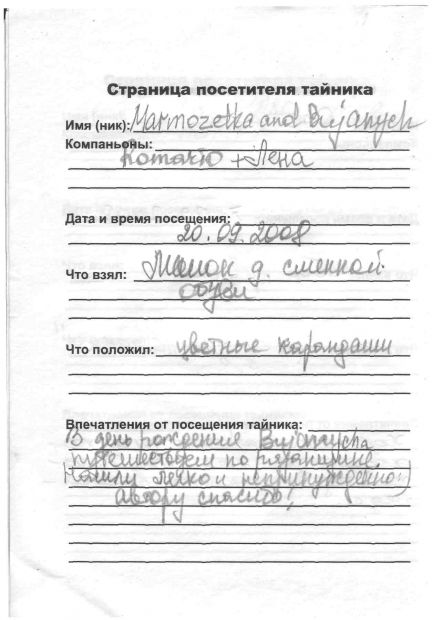 Страница посетителя тайника
Имя (ник): Marmozetka and Bujanych
Компаньоны:
Котокто + Лена
Дата и время посещения:
20.09.2008
Что взял: Мешок д. сменной
обуви
Что положил: цветные карандаши
Впечатления от посещения тайника:
В день рождения Bujanycha
путешествуем по рязанщине.
Нашли легко и непринужденно:)
автору спасибо!